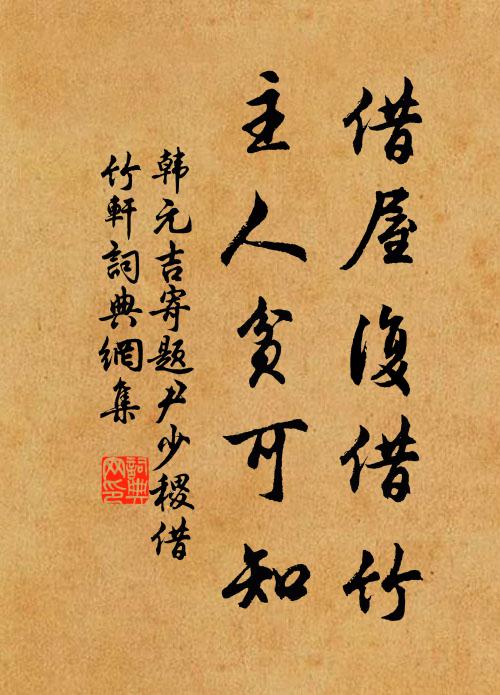 借屋復借竹
主人贫可知
韩元吉寄题尹少稷借
竹軒詞典網集
詞典
网印